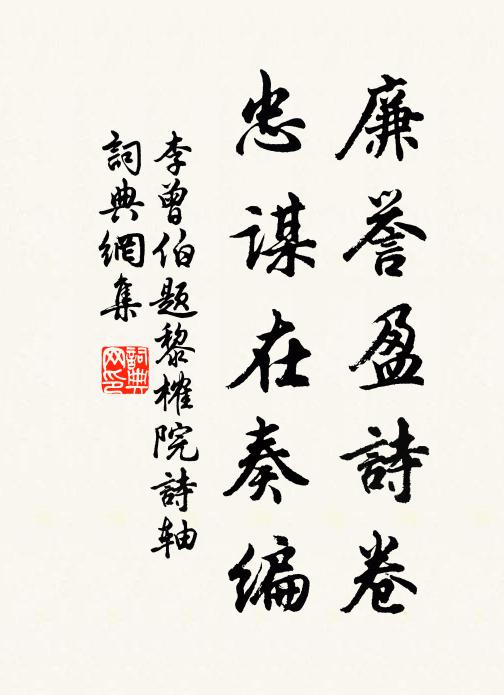 廉誉盈詩卷
忠謀在奏編
李曾伯題黎榷院詩轴
詞典網集
詞典网印